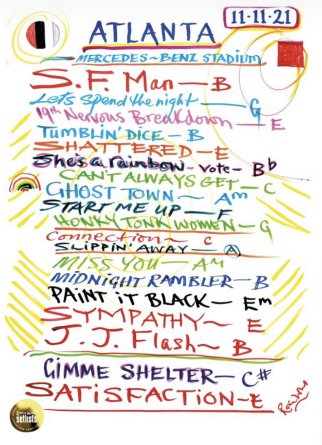 11-11-21
ATLANTA
MERCEDES-BENZ STADIUM
S.F. Man — B
Lets spend the night — G
19th Nervous Breakdown — E
TUMBLIN' DICE — B
SHATTERED — E
She's a rainbow — Vote — Bb
CAN'T ALWAYS GET — C
GHOST TOWN — Am
START ME UP — F
HONKY TONK WOMEN — G
Connection — C
SLIPPIN' AWAY — (A)
MISS YOU — Am
MIDNIGHT RAMBLER — B
PAINT IT BLACK — Em
SYMPATHY — E
J.J. Flash — B
GIMME SHELTER — C#
SATISFACTION — E
setlists